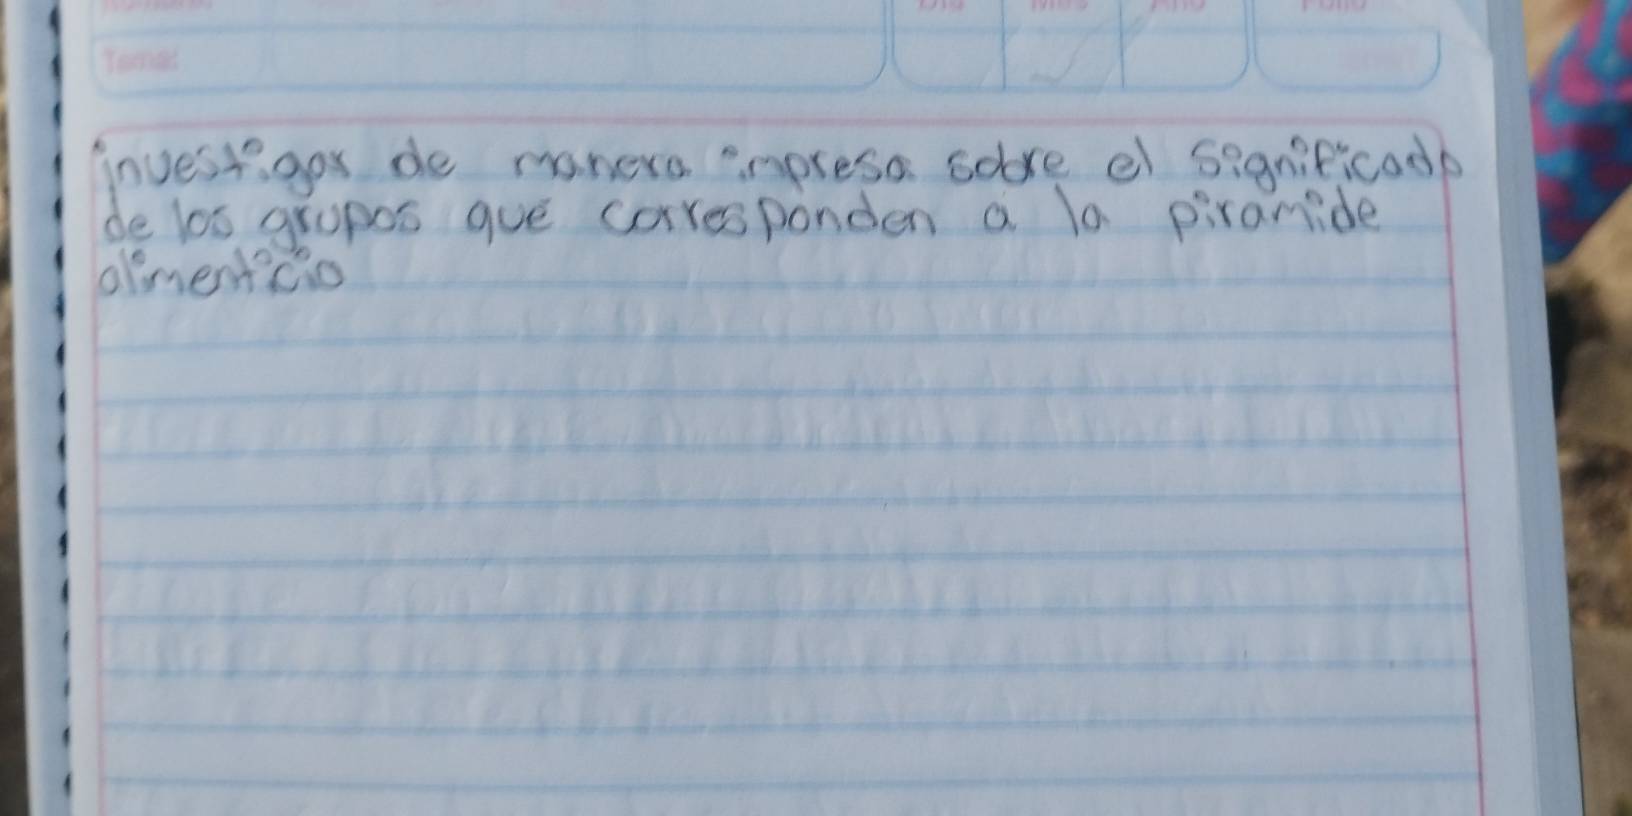 Tema:
investigar de manera impresa sobre el significado
de los grupos que corresponden a la piramide
alimenticio